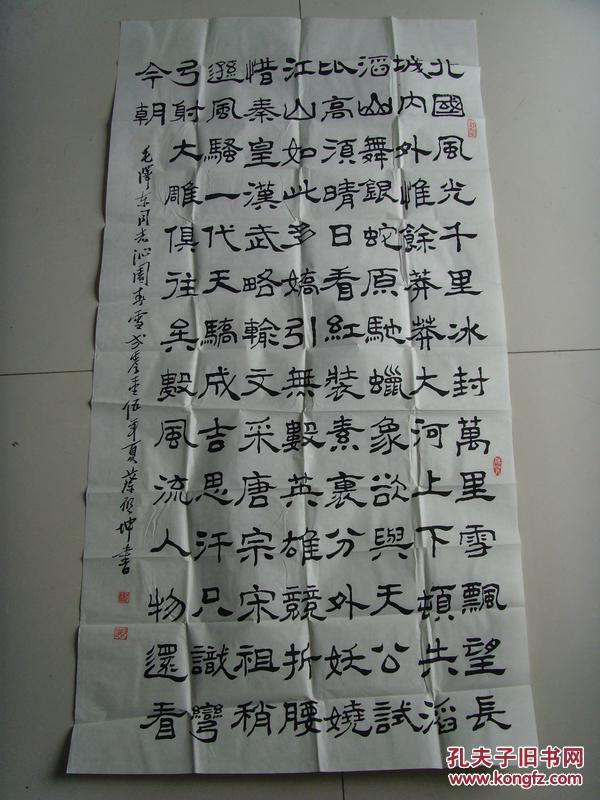 北國風光千里冰封萬里雪飄望長
城内外惟餘莽莽大河上下頓失滔
滔山舞銀蛇原馳蠟象欲與天公試
比高須晴日看紅裝素裹分外妖嬈
江山如此多嬌引無數英雄競折腰
惜秦皇漢武略輸文采唐宗宋祖稍
遜風騷一代天驕成吉思汗只識彎
弓射大雕俱往矣數風流人物還看
今朝
毛澤东同志沁園春雪弍零壹伍年夏坤書
孔夫子旧书网
www.kongfz.com